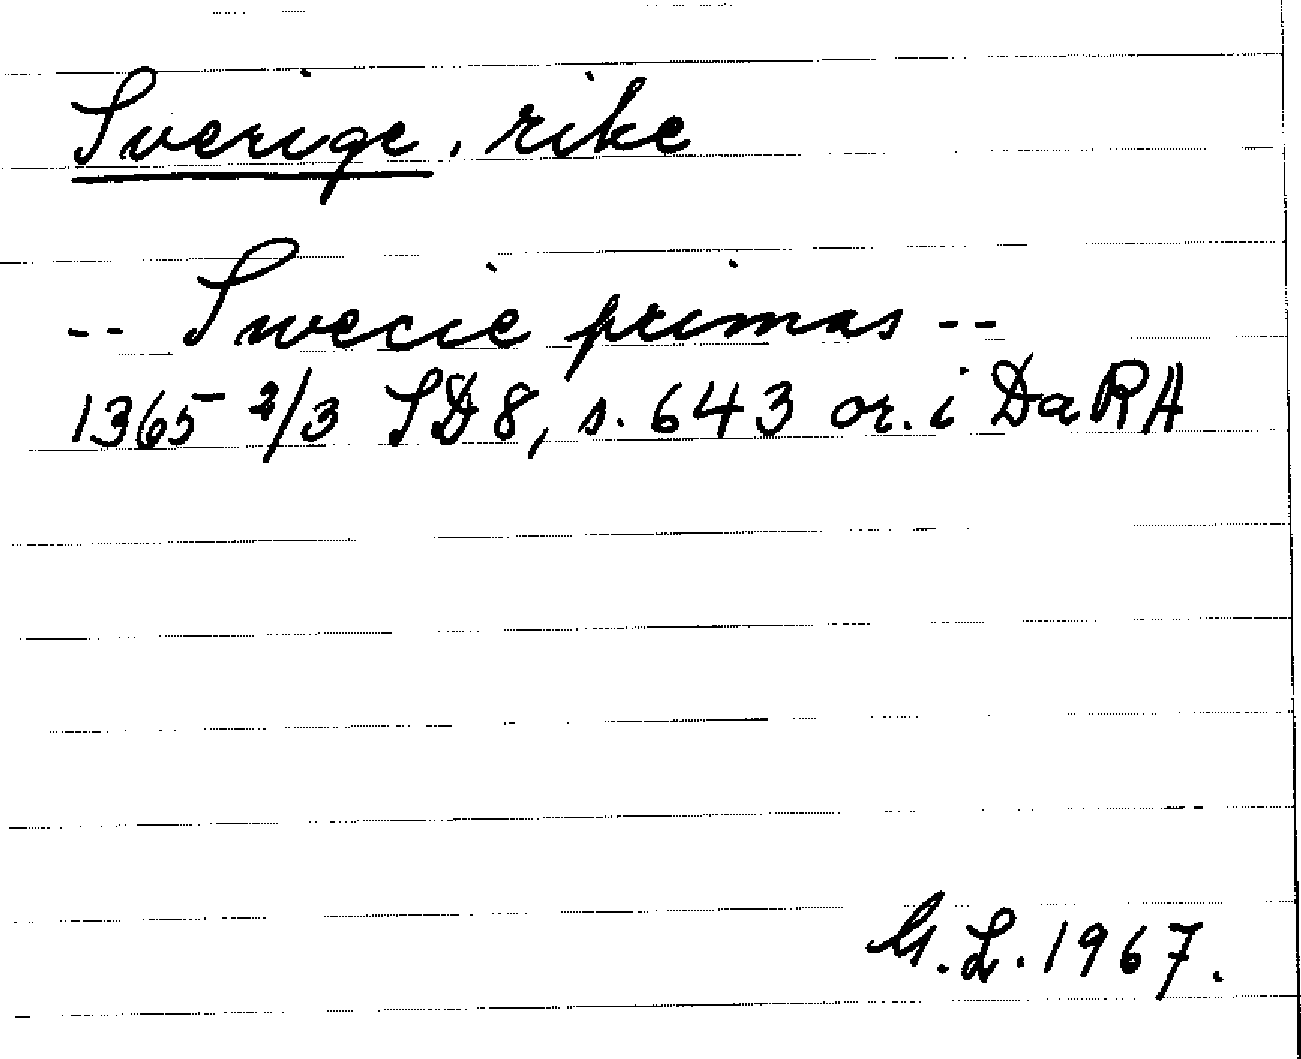 Sverige, rike
-- Swecie primas --
1365 2/3 SD8, s. 643 or. i DaRA
G.L. 1967.